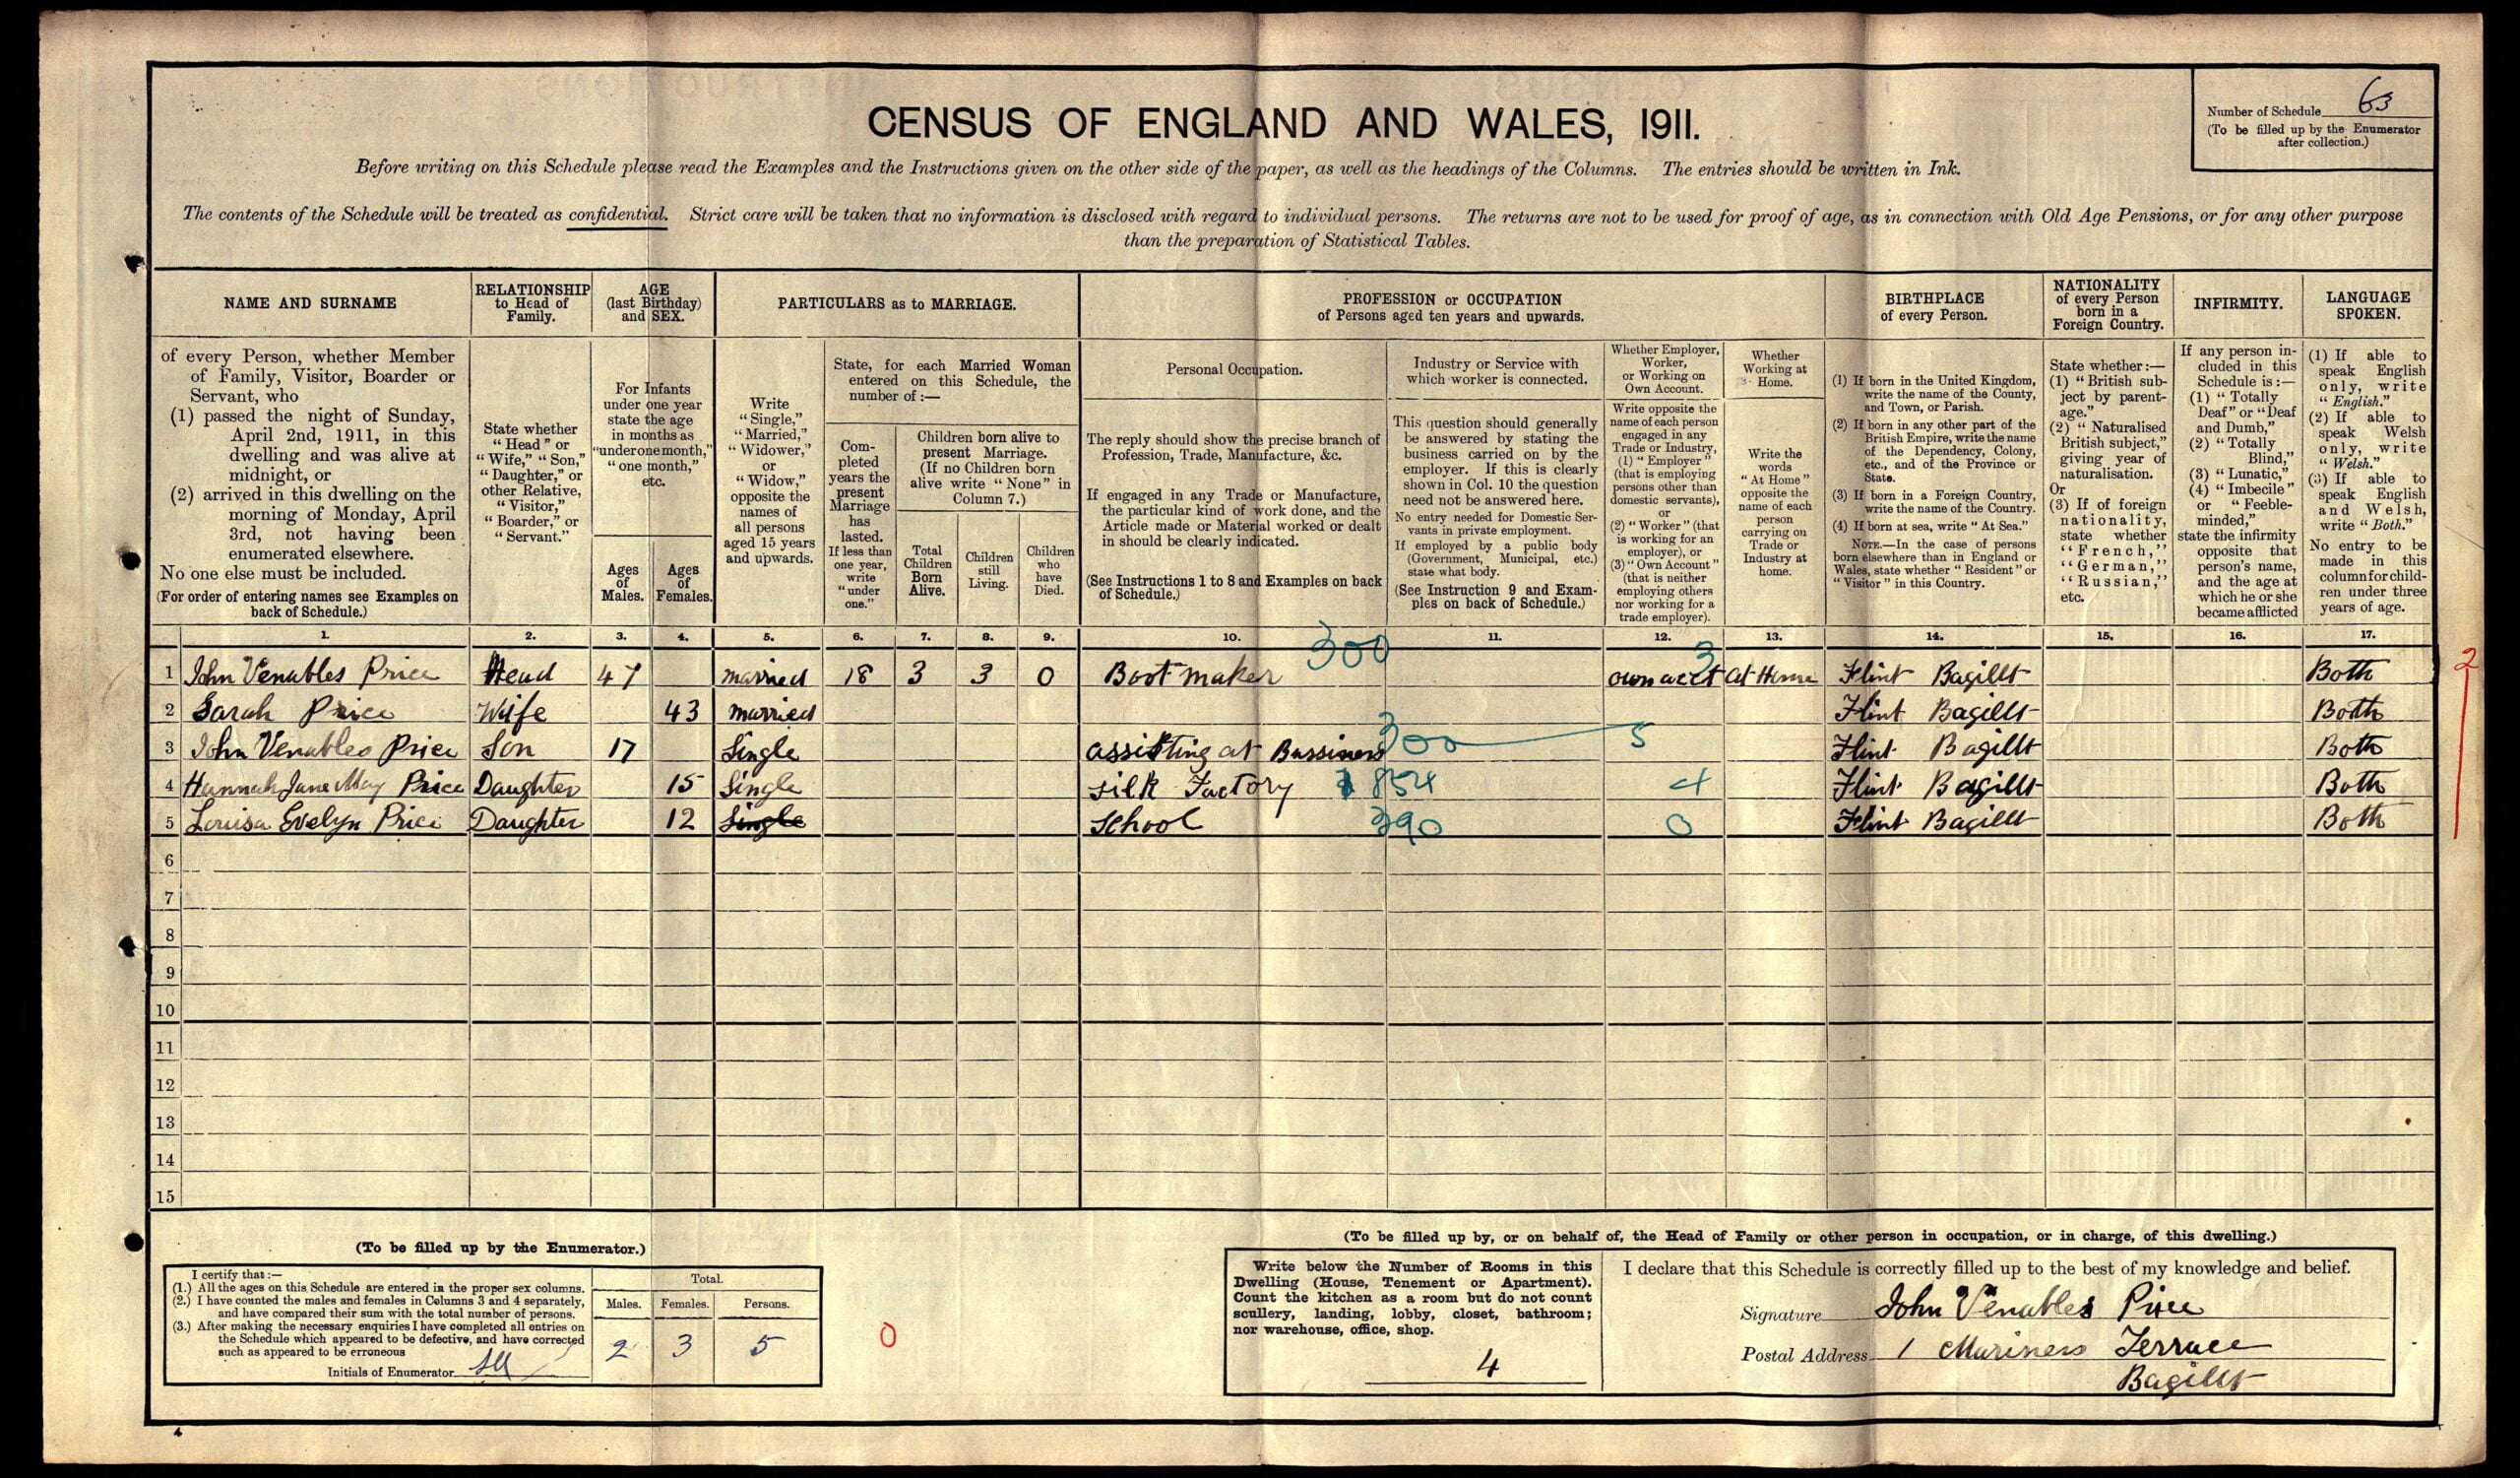 CENSUS OF ENGLAND AND WALES, 1911.
Number of Schedule 63
(To be filled up by the Enumerator
after collection.)
Before writing on this Schedule please read the Examples and the Instructions given on the other side of the paper, as well as the headings of the Columns. The entries should be written in Ink.
The contents of the Schedule will be treated as confidential. Strict care will be taken that no information is disclosed with regard to individual persons. The returns are not to be used for proof of age, as in connection with Old Age Pensions, or for any other purpose
than the preparation of Statistical Tables.
NAME AND SURNAME
of every Person, whether Member
of Family, Visitor, Boarder or
Servant, who
(1) passed the night of Sunday,
April 2nd, 1911, in this
dwelling and was alive at
midnight, or
(2) arrived in this dwelling on the
morning of Monday, April
3rd, not having been
enumerated elsewhere.
No one else must be included.
(For order of entering names see Examples on
back of Schedule.)
RELATIONSHIP
to Head of
Family.
State whether
"Head" or
"Wife," "Son,"
"Daughter," or
other Relative,
"Visitor,"
"Boarder," or
"Servant."
AGE
(last Birthday)
and SEX.
For Infants
under one year
state the age
in months as
"under one month,"
"one month,"
etc.
Ages
of
Males.
Ages
of
Females.
PARTICULARS as to MARRIAGE.
Write
"Single,"
"Married,"
"Widower,"
or
"Widow,"
opposite the
names of
all persons
aged 15 years
and upwards.
State, for each Married Woman
entered on this Schedule, the
number of :—
Com-
pleted
years the
present
Marriage
has
lasted.
If less than
one year,
write
"under
one."
Children born alive to
present Marriage.
(If no Children born
alive write "None" in
Column 7.)
Total
Children
Born
Alive.
Children
still
Living.
Children
who
have
Died.
PROFESSION or OCCUPATION
of Persons aged ten years and upwards.
Personal Occupation.
The reply should show the precise branch of
Profession, Trade, Manufacture, &c.
If engaged in any Trade or Manufacture,
the particular kind of work done, and the
Article made or Material worked or dealt
in should be clearly indicated.
(See Instructions 1 to 8 and Examples on back
of Schedule.)
Industry or Service with
which worker is connected.
This question should generally
be answered by stating the
business carried on by the
employer. If this is clearly
shown in Col. 10 the question
need not be answered here.
No entry needed for Domestic Ser-
vants in private employment.
If employed by a public body
(Government, Municipal, etc.)
state what body.
(See Instruction 9 and Exam-
ples on back of Schedule.)
Whether Employer,
Worker,
or Working on
Own Account.
Write opposite the
name of each person
engaged in any
Trade or Industry,
(1) "Employer"
(that is employing
persons other than
domestic servants),
or
(2) "Worker" (that
is working for an
employer), or
(3) "Own Account"
(that is neither
employing others
nor working for a
trade employer).
Whether
Working at
Home.
Write the
words
"At Home"
opposite the
name of each
person
carrying on
Trade or
Industry at
home.
BIRTHPLACE
of every Person.
(1) If born in the United Kingdom,
write the name of the County,
and Town, or Parish.
(2) If born in any other part of the
British Empire, write the name
of the Dependency, Colony,
etc., and of the Province or
State.
(3) If born in a Foreign Country,
write the name of the Country.
(4) If born at sea, write "At Sea."
NOTE.—In the case of persons
born elsewhere than in England or
Wales, state whether "Resident" or
"Visitor" in this Country.
NATIONALITY
of every Person
born in a
Foreign Country.
State whether :—
(1) "British sub-
ject by parent-
age."
(2) "Naturalised
British subject,"
giving year of
naturalisation.
Or
(3) If of foreign
nationality,
state whether
"French,"
"German,"
"Russian,"
etc.
INFIRMITY.
If any person in-
cluded in this
Schedule is :—
(1) "Totally
Deaf" or "Deaf
and Dumb,"
(2) "Totally
Blind,"
(3) "Lunatic,"
(4) "Imbecile"
or "Feeble-
minded,"
state the infirmity
opposite that
person's name,
and the age at
which he or she
became afflicted
LANGUAGE
SPOKEN.
(1) If able to
speak English
only, write
"English."
(2) If able to
speak Welsh
only, write
"Welsh."
(3) If able to
speak English
and Welsh,
write "Both."
No entry to be
made in this
column for child-
ren under three
years of age.
1. 2. 3. 4. 5. 6. 7. 8. 9. 10. 11. 12. 13. 14. 15. 16. 17.
300 3
1 John Venables Price Head 47 married 18 3 3 0 Boot maker own acct At Home Flint Bagillt Both 2
2 Sarah Price Wife 43 married Flint Bagillt Both
3 John Venables Price Son 17 Single assisting at Bussiness 300 5 Flint Bagillt Both
4 Hannah Jane May Price Daughter 15 Single silk Factory 854 4 Flint Bagillt Both
5 Louisa Evelyn Price Daughter 12 Single School 390 0 Flint Bagillt Both
6
7
8
9
10
11
12
13
14
15
(To be filled up by the Enumerator.)
I certify that :—
(1.) All the ages on this Schedule are entered in the proper sex columns.
(2.) I have counted the males and females in Columns 3 and 4 separately,
and have compared their sum with the total number of persons.
(3.) After making the necessary enquiries I have completed all entries on
the Schedule which appeared to be defective, and have corrected
such as appeared to be erroneous
Initials of Enumerator
Total.
Males. Females. Persons.
2 3 5
0
(To be filled up by, or on behalf of, the Head of Family or other person in occupation, or in charge, of this dwelling.)
Write below the Number of Rooms in this
Dwelling (House, Tenement or Apartment).
Count the kitchen as a room but do not count
scullery, landing, lobby, closet, bathroom;
nor warehouse, office, shop.
4
I declare that this Schedule is correctly filled up to the best of my knowledge and belief.
Signature John Venables Price
Postal Address 1 Mariners Terrace
Bagillt
4